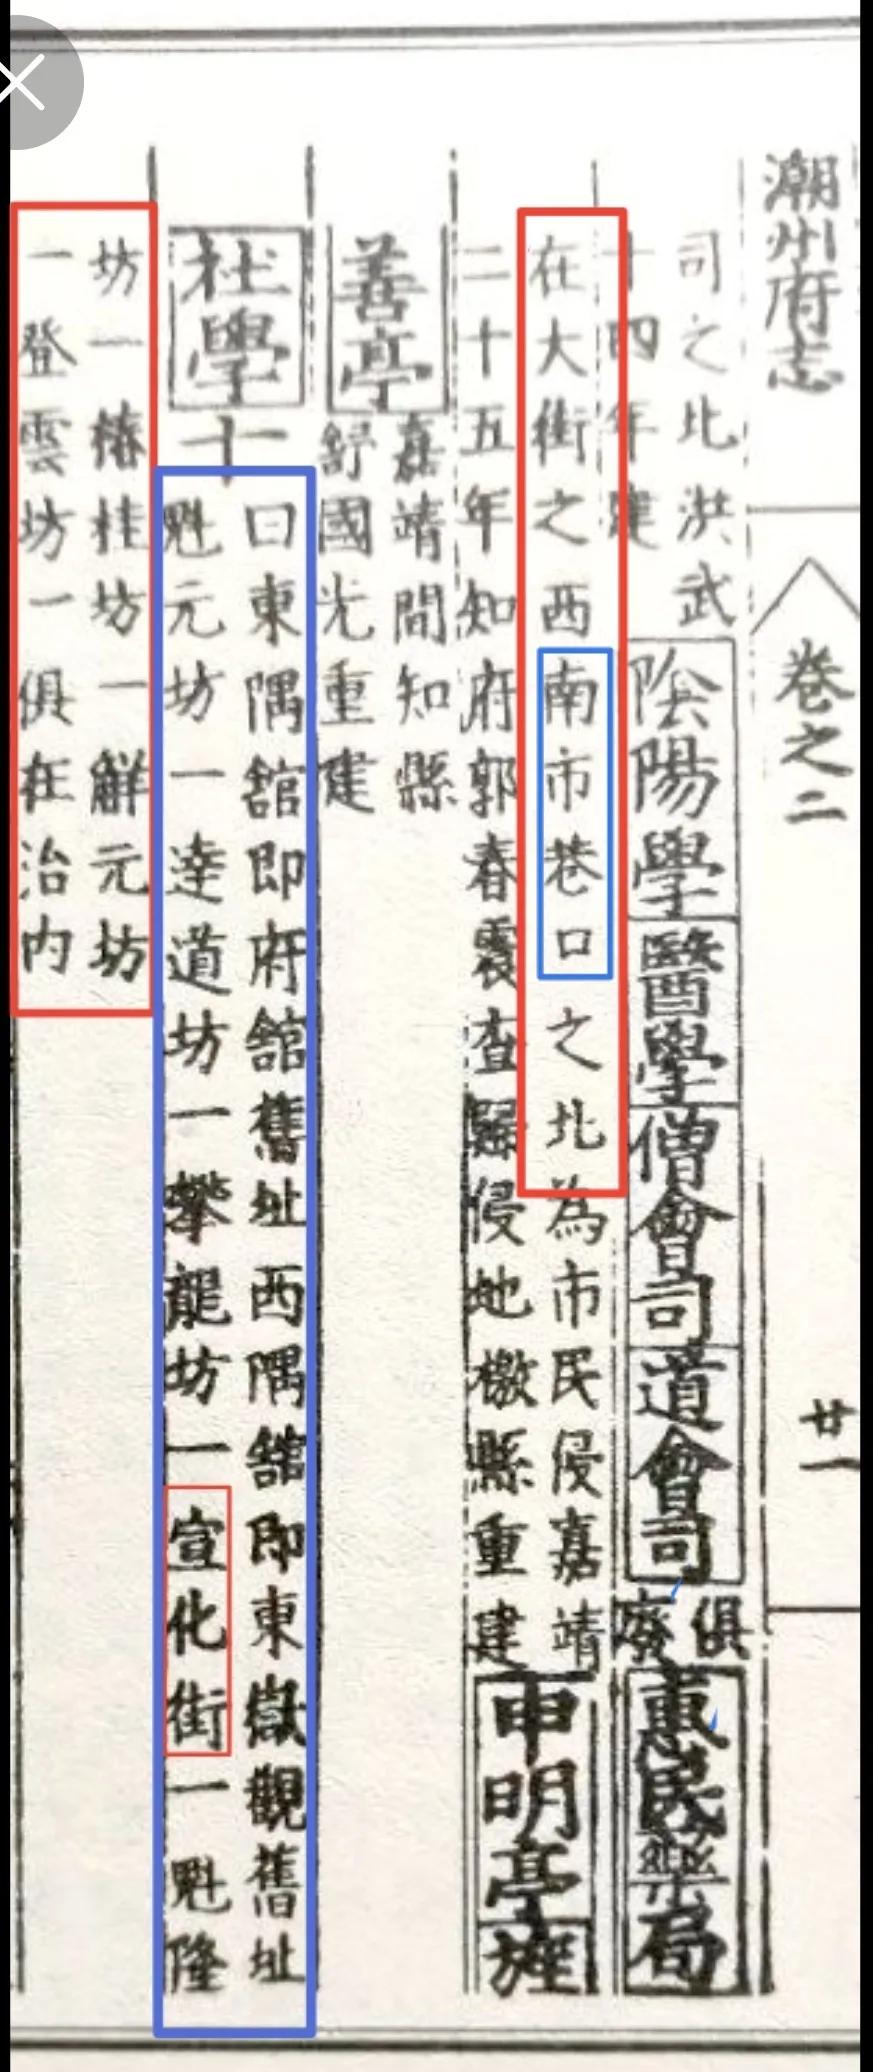 潮州府志
卷之二
廿一
司之北洪武
十四年建
陰陽學
醫學
僧會司
道會司
俱
廢
惠民藥局
在大街之西南市巷口之北為市民侵嘉靖
二十五年知府郭春震查歸侵地檄縣重建
申明亭
旌
善亭
嘉靖間知縣
舒國光重建
社學
一曰東隅舘即府舘舊址西隅舘即東嶽觀舊址
十魁元坊一達道坊一攀龍坊一宣化街一魁隆
坊一椿桂坊一解元坊
一登雲坊一俱在治内